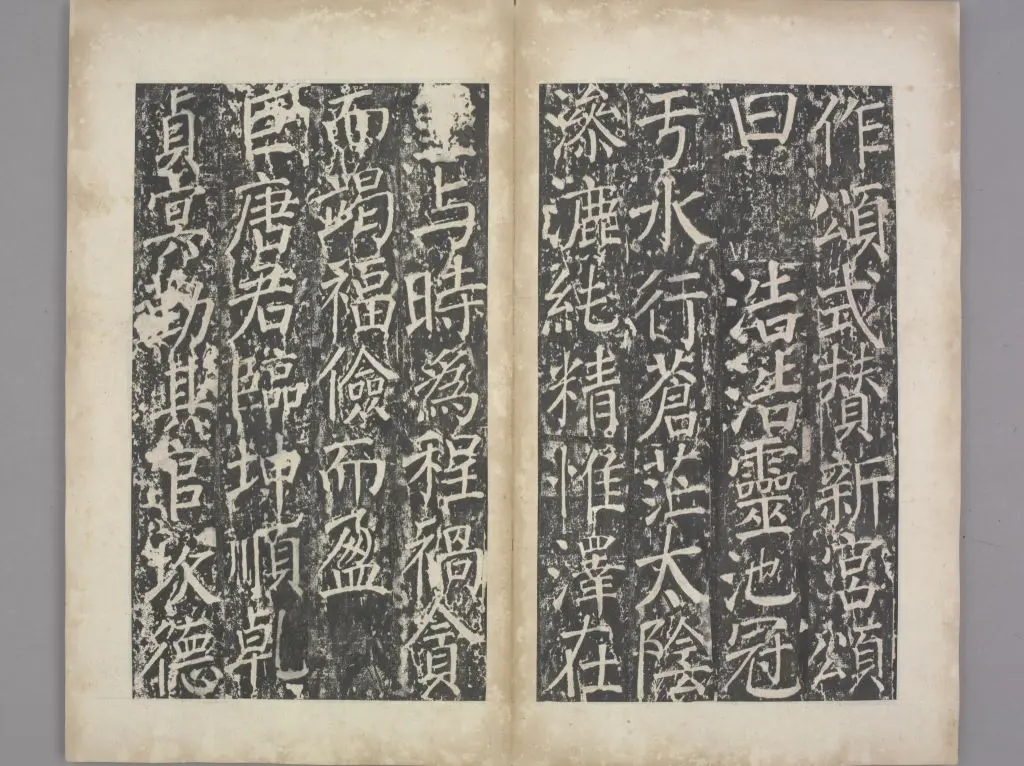 作頌式賛新宮頌
曰浩浩靈池冠
亏水行蒼茫太陰
滲漉純精惟澤在
与時爲程禍貪
而竭福儉而盈
巨唐君臨坤順乹
貞冥勤其官坎德